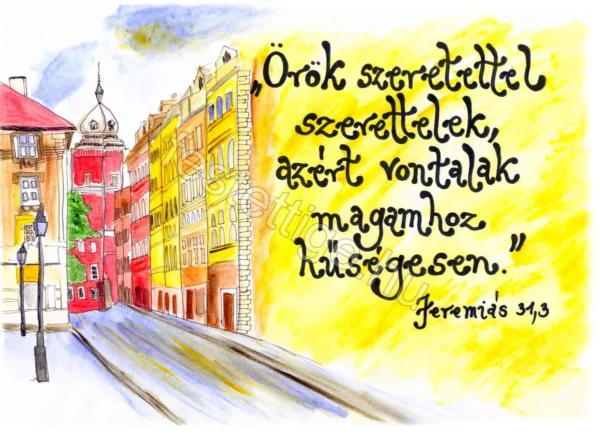 „Örök szeretettel
szerettelek,
azért vontalak
magamhoz
hűségesen.”
Jeremiás 31,3